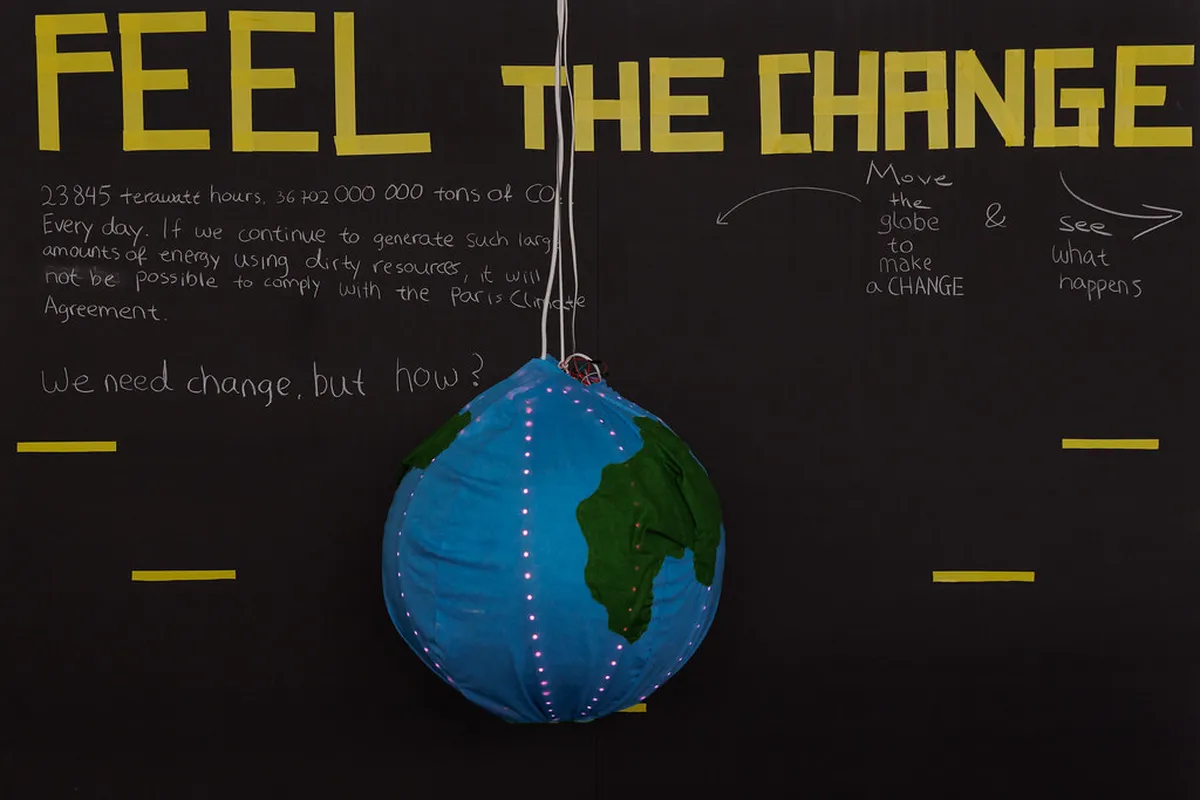 FEEL THE CHANGE
23845 terawatt hours, 36702000 000 tons of CO
Every day. If we continue to generate such larg
amounts of energy using dirty resources, it will
not be possible to comply with the Paris Climate
Agreement.
We need change, but how?
Move
the
globe
to
make
a CHANGE
&
see
what
happens